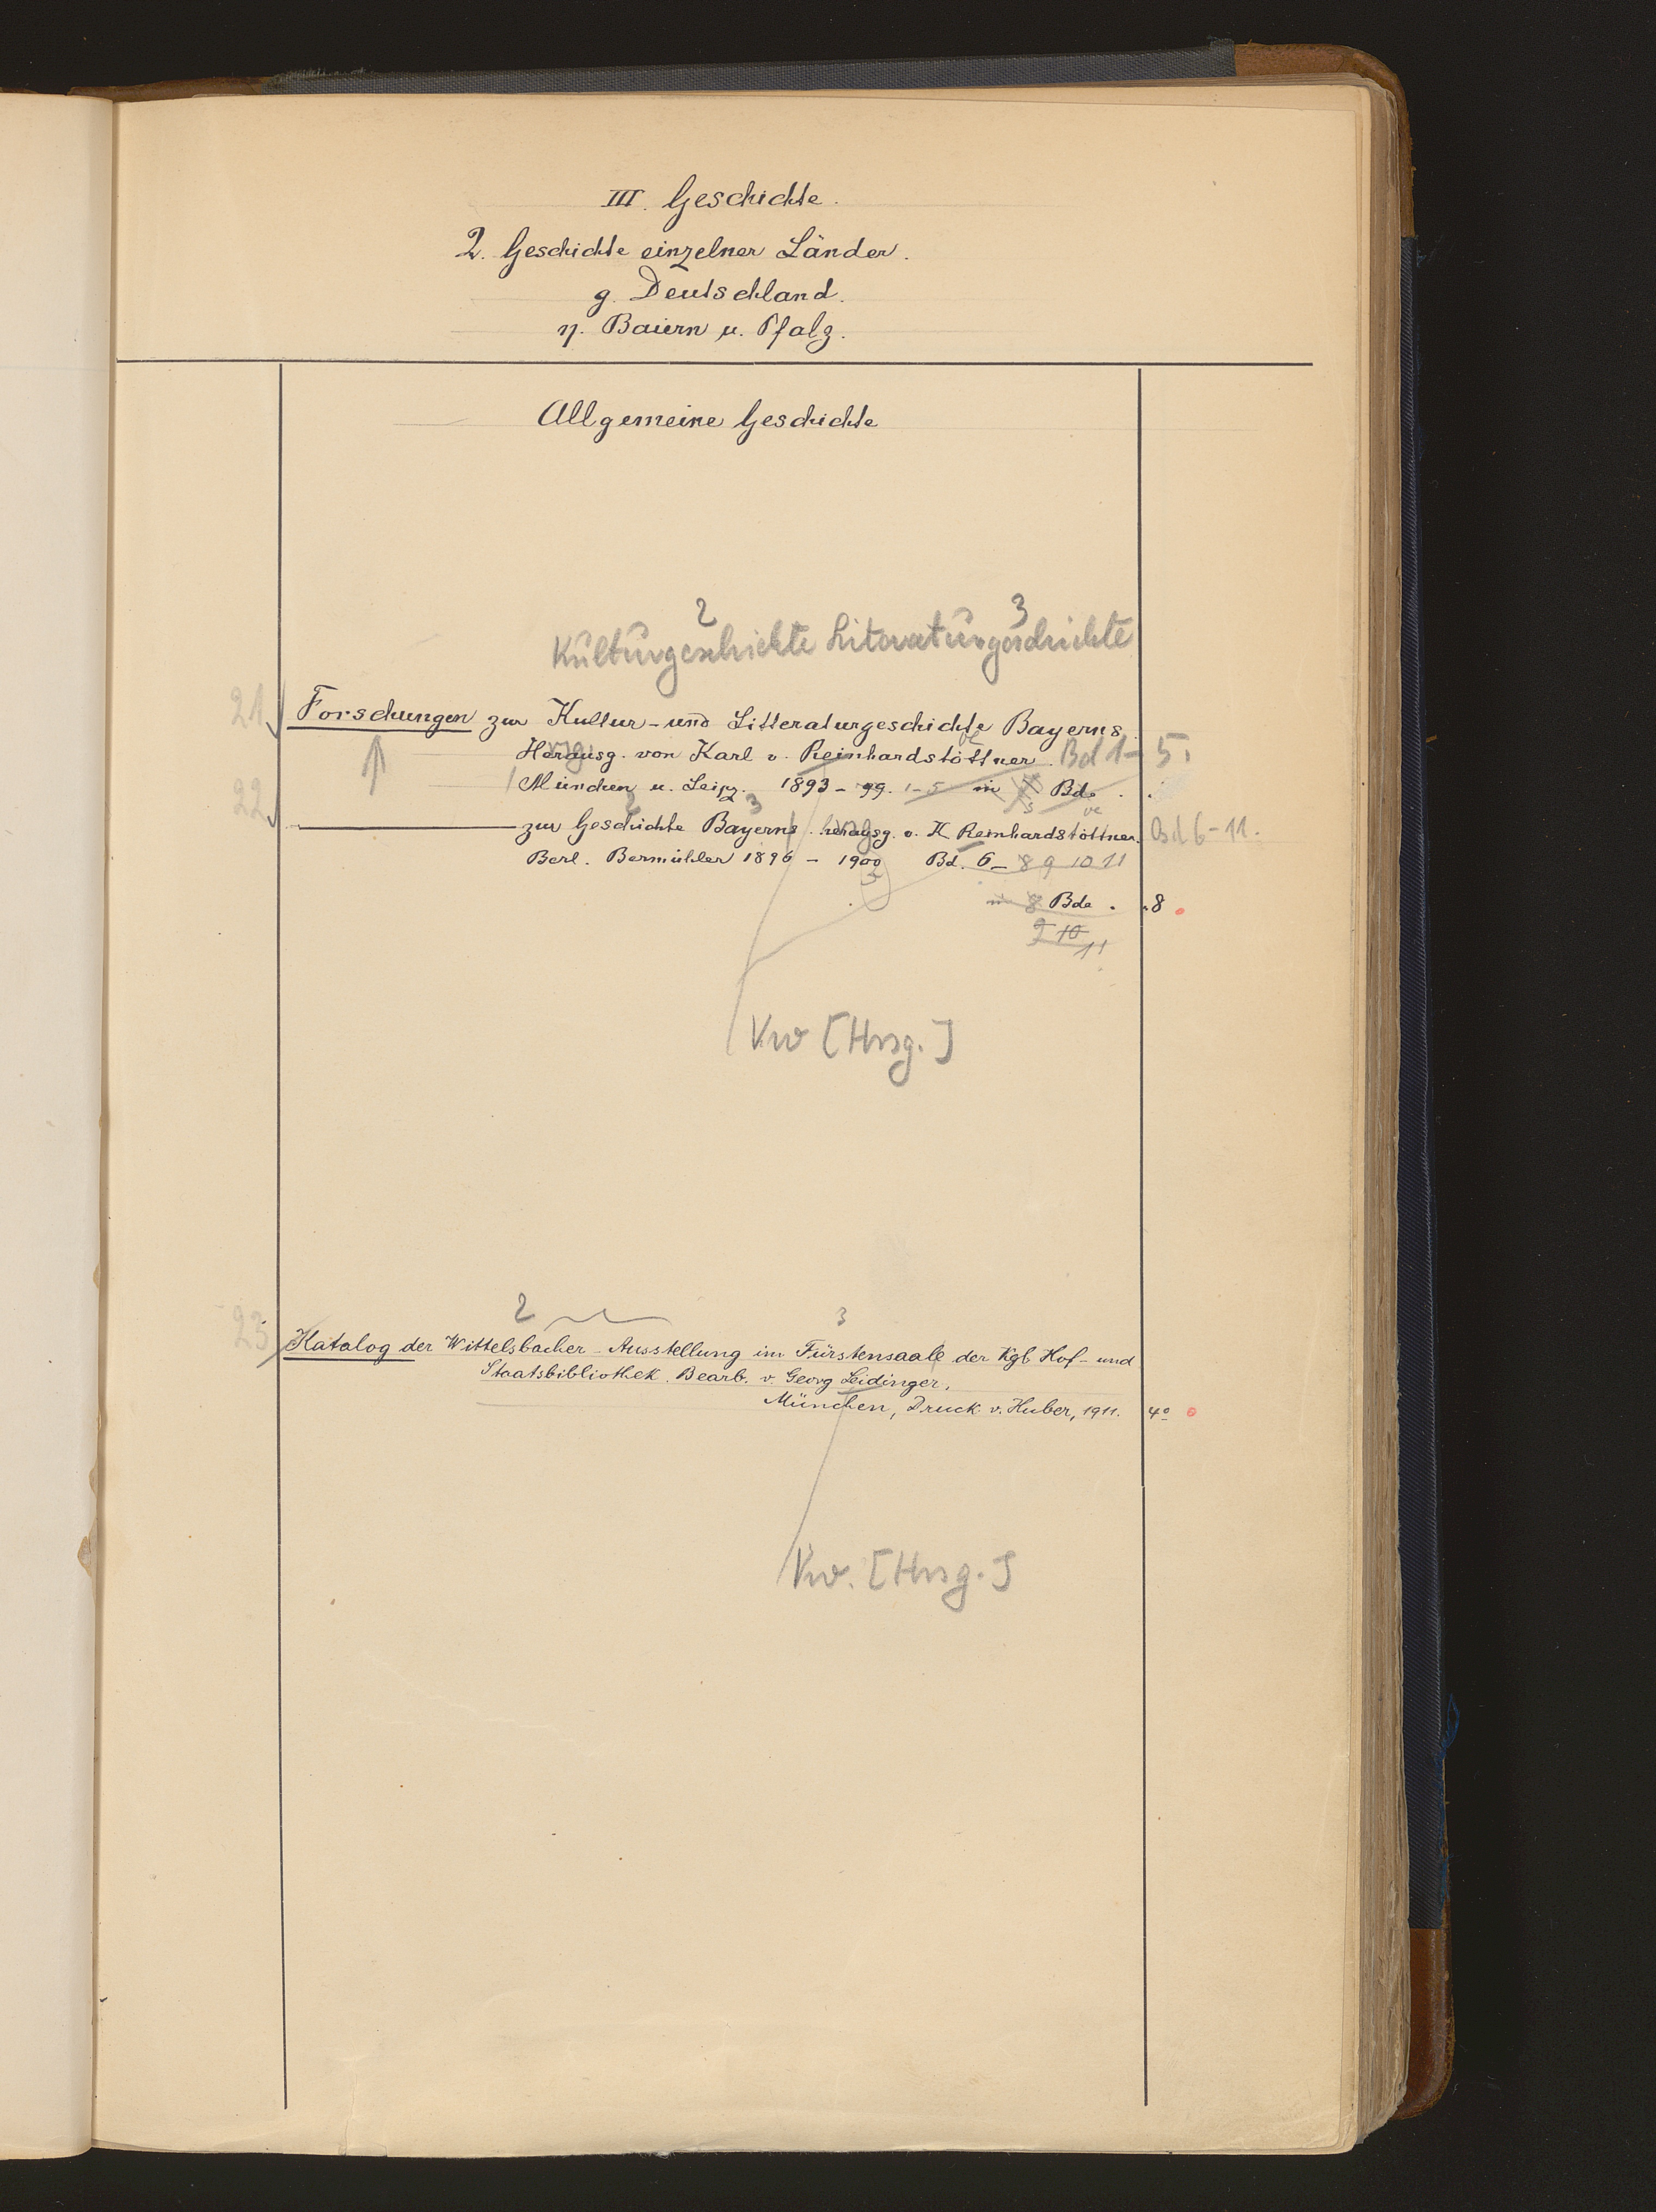 III. Geschichte.
2. Geschichte einzelner Länder.
g. Deutschland.
η. Baiern u. Pfalz.
Allgemeine Geschichte
2 3
Kulturgeschichte Literaturgeschichte
21 Forschungen zur Kultur- und Litteraturgeschichte Bayerns.
Herausg. von Karl v. Reinhardstöttner. Bd 1-5.
München u. Leipz. 1893-99. 1-5 in Bde.
22 2 3
zur Geschichte Bayerns. herausg. v. K Reinhardstöttner. Bd 6-11.
Berl. Bermühler 1896 - 1900 Bd. 6-8 9 10 11
in 8 Bde. 8
9 10
11
Vw [Hrsg.]
2 3
23 Katalog der Wittelsbacher-Ausstellung im Fürstensaale der Kgl. Hof- und
Staatsbibliothek. Bearb. v. Georg Leidinger.
München, Druck v. Huber, 1911. 4°
Vw. [Hrsg.]